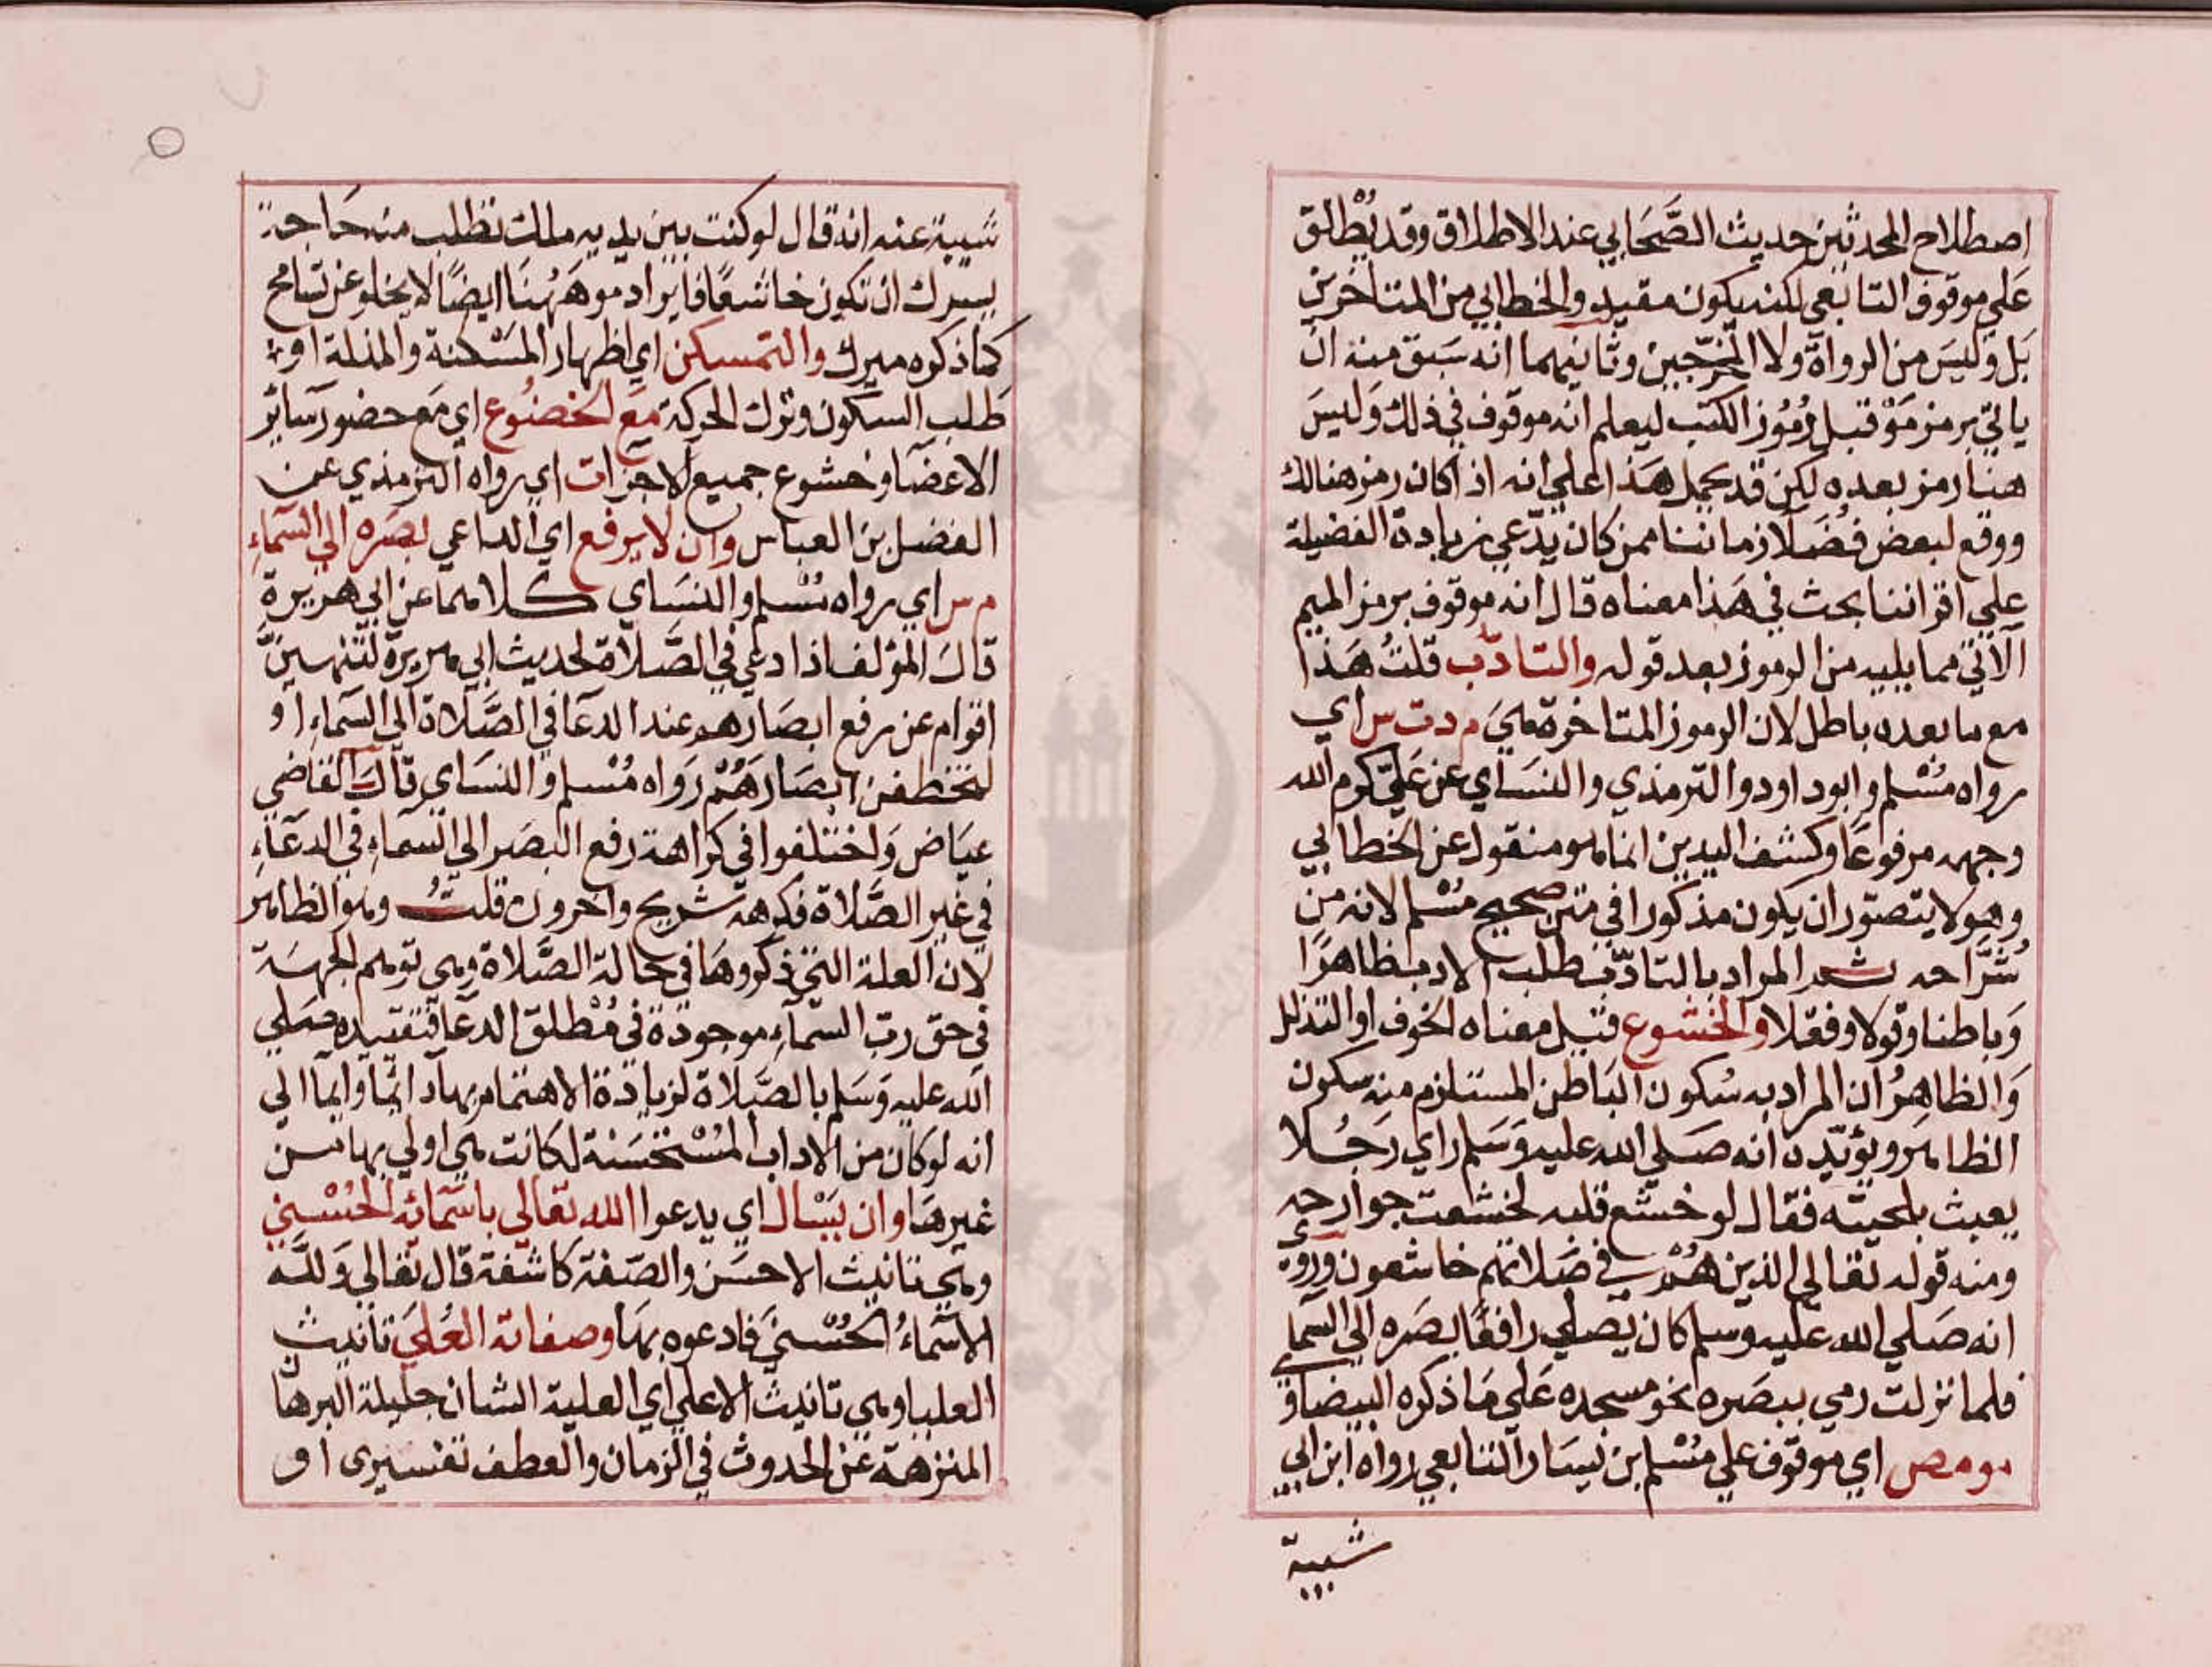 اصطلاح المحدثين حديث الصَّحَابي عند الاطلاق وقد يُطْلق
عَلي موقوف التابعي لكنه يكون مقيد والخطابي من المتاخرين
بَل وَليسَ من الرواة ولا المخرّجين وثانيهما انه سَبق منه ان
ياتي برمز مَوْ قبل رُمُوز الكتب ليعلم انه موقوف في ذلك وَليسَ
هنا رمز بعده لكن قد يحمل هَذا علي انه اذا كان رمز هنالك
ووقع لبعض فضَلاء زماننا ممن كان يدّعي زيادة الفضيلة
علي اقراننا بحث في هَذا معناه قال انه موقوف برمز الميم
الآتي مما يليه من الرموز بعد قوله والتادّب قلتُ هَذا
مع ما بعده باطل لان الرموز المتاخرة هيَ م د ت س اي
رواه مُسْلم وابو داود والترمذي والنسَاي عن عَليّ كرم الله
وجهه مرفوعًا وكشف اليدين انما هو منقول عن الخطابي
وهو لا يتصوّر ان يكون مذكورا في متن صحيح مُسْلم لانه من
شُرَّاحه ثم المراد بالتادّب طلب الادب ظاهرًا
وَباطنا وقولا وفعْلا والخشوع قيل معناه الخوف او التذلل
وَالظاهِرُ ان المراد به سُكون البَاطن المستلزم منه سكون
الظاهر ويؤيّده انه صَلي الله عليه وَسَلم راي رَجُلا
يعبث بلحيته فقال لو خشع قلبه لخشعت جوارحه
ومنه قوله تعَالي الذين هُمْ في صَلاتهم خاشعون وروي
انه صَلي الله عليه وسلم كان يُصَلي رافعًا بصَره الي السّما
فلما نزلت رمي ببصَره نحو مسجده عَلي مَا ذكره البيضاوي
مو مص اي موقوف علي مُسْلم بن يسَار التابعي رواه ابن ابي
شيبة
شيبة عنه انه قال لو كنت بين يديه ملك تطلب منه حَاجة
يسرك ان تكون خاشعًا فايراد مو هَهُنَا ايضًا لا يخلو عن تسامح
كما ذكره ميرك والتمسكن اي اظهار المَسْكنة والمذلة او
طَلب السكون وترك الحركة مَع الخضُوع اي مَع حضور سَائر
الاعضَا وخشوع جميع الاجزا ت اي رواه الترمذي عن
الفضل بن العباس وان لا يرفع اي الداعي بصَره الي السّماءِ
م س اي رواه مُسْلم والنسَاي كلاهما عن ابي هريرة
قالَ المؤلف اذا دعي في الصَّلاة لحديث ابي هريرة لتنهينَّ
اقوام عن رفع ابصَارهم عند الدعَا في الصَّلاة الي السّماءِ او
لتخطفن ابصَارهُمْ رَوَاه مُسْلم والنسَاي قالَ القاضي
عيَاض وَاختلفوا في كراهة رفع البصَر الي السّماءِ في الدعَاءِ
في غير الصَّلاة فكرهه شريح واخرون قلتُ وهو الظاهر
لان العلة التي ذكروهَا في حالة الصَّلاة وهي توهم الجهَة
في حق ربّ السّماءِ موجودة في مُطْلق الدعَا فتقييده صَلي
الله عليه وَسَلم بالصَّلاة لزيادة الاهتمام بها دائمًا وايمَا الي
انه لو كان من الاداب المُسْتحْسَنة لكانت هي اولي بها من
غيرهَا وان يَسْال اي يدعوا الله تعَالي باسْمَائه الحُسْني
وهي تانيث الاحسَن والصّفة كاشفة قال تعَالي وَللهِ
الاسْمَاءُ الحُسْنيَ فادعوه بهَا وصفاته العُليَ تانيث
العليا وهي تانيث الاعلي اي العلية الشان جليلة البرهان
المنزهة عَن الحدوث في الزمان والعطف تفسيري او